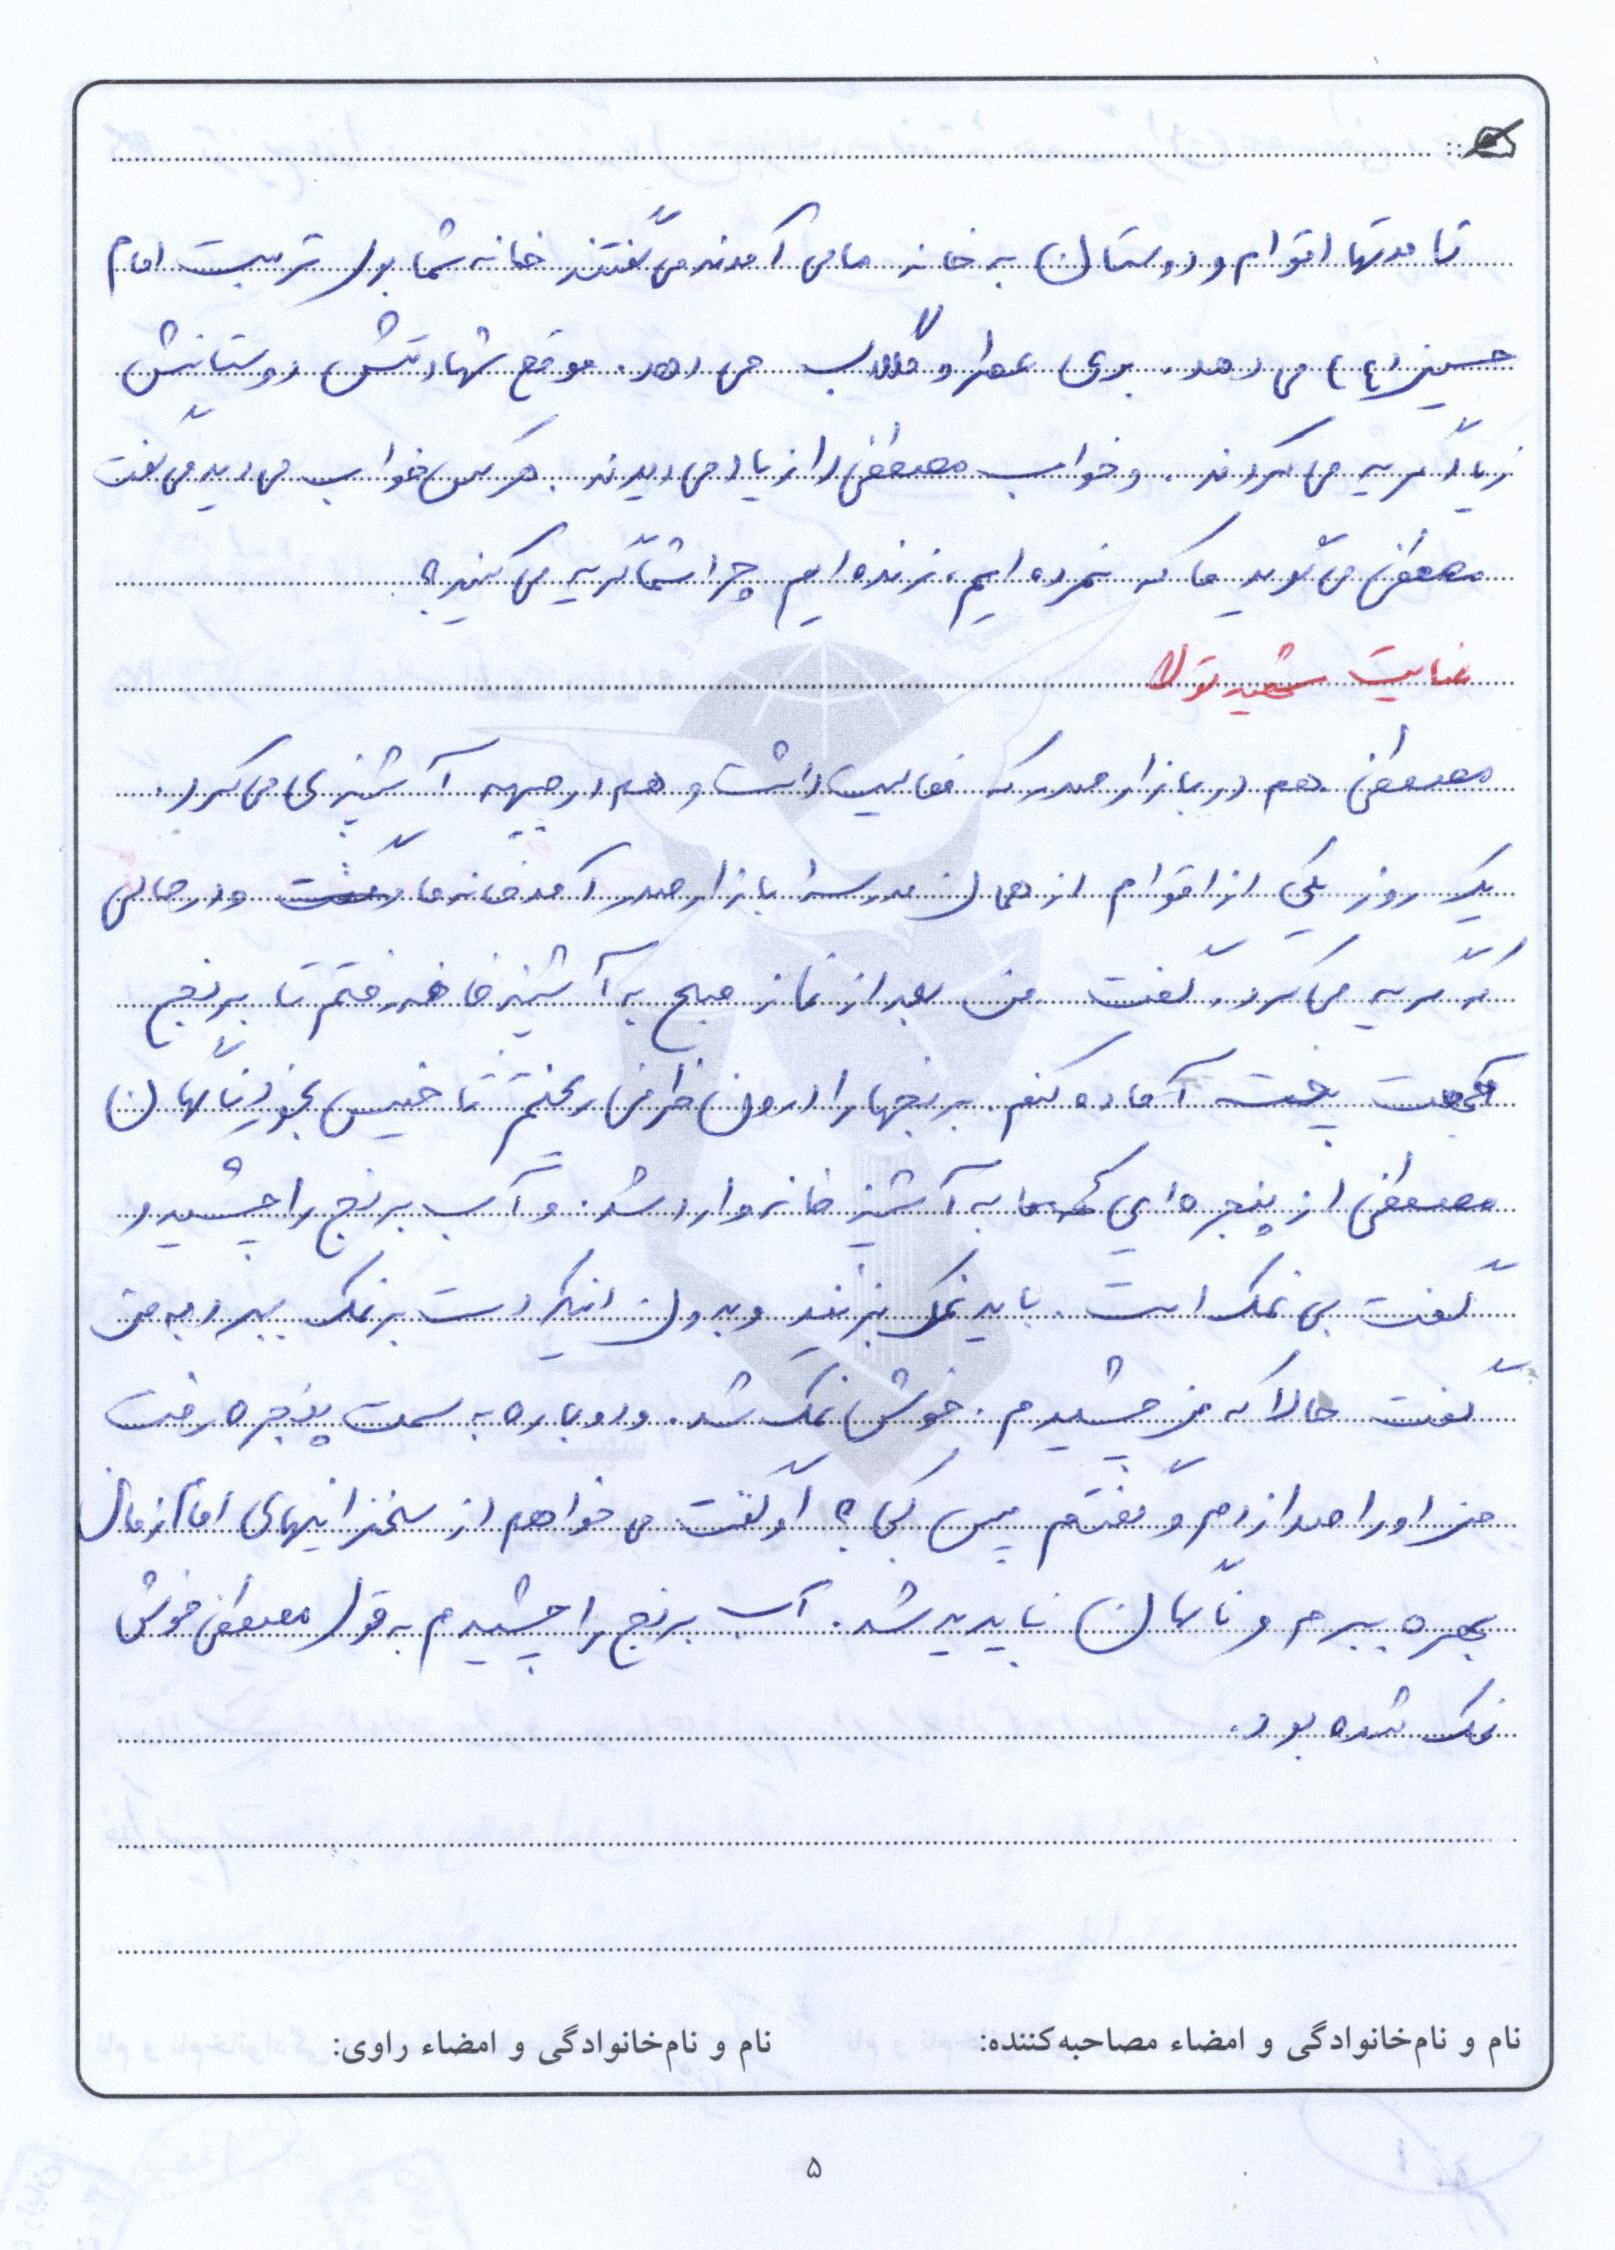 تا مدتها اقوام و دوستان به خانه ما می آمدند می گفتند خانه شما بوی تربت امام
حسین (ع) می دهد. بوی عطر و گلاب می دهد. موقع شهادتش دوستانش
زیاد گریه می کردند. و خواب مصطفی را زیاد می دیدند. هر کس خواب می دید می گفت
مصطفی می گوید ما که نمرده ایم، زنده ایم چرا شما گریه می کنید؟
عنایت شهید تولا
مصطفی هم در بازار صدر که فعالیت داشت و هم در جبهه آشپزی می کرد.
یک روز یکی از اقوام از همان مدرسه بازار صدر آمد خانه ما و در حالی
که گریه می کرد، گفت من بعد از نماز صبح به آشپزخانه رفتم تا برنج
جهت پخت آماده کنم. برنجها را درون ظرفی ریختم تا خیس بخورد ناگهان
مصطفی از پنجره ای به آشپزخانه وارد شد. و آب برنج را چشید و
گفت بی نمک است. باید نمک بزنید و بدون اینکه دست بر نمک ببرد به من
گفت حالا که من چشیدم. خوش نمک شد. و دوباره به سمت پنجره رفت
من او را صدا زدم و گفتم پس کجا؟ او گفت می خواهم از سخنرانیهای امام زمان
بهره ببرم و ناگهان ناپدید شد. آب برنج را چشیدم به قول مصطفی خوش
نمک شده بود.
نام و نام‌خانوادگی و امضاء مصاحبه‌کننده: نام و نام‌خانوادگی و امضاء راوی:
۵